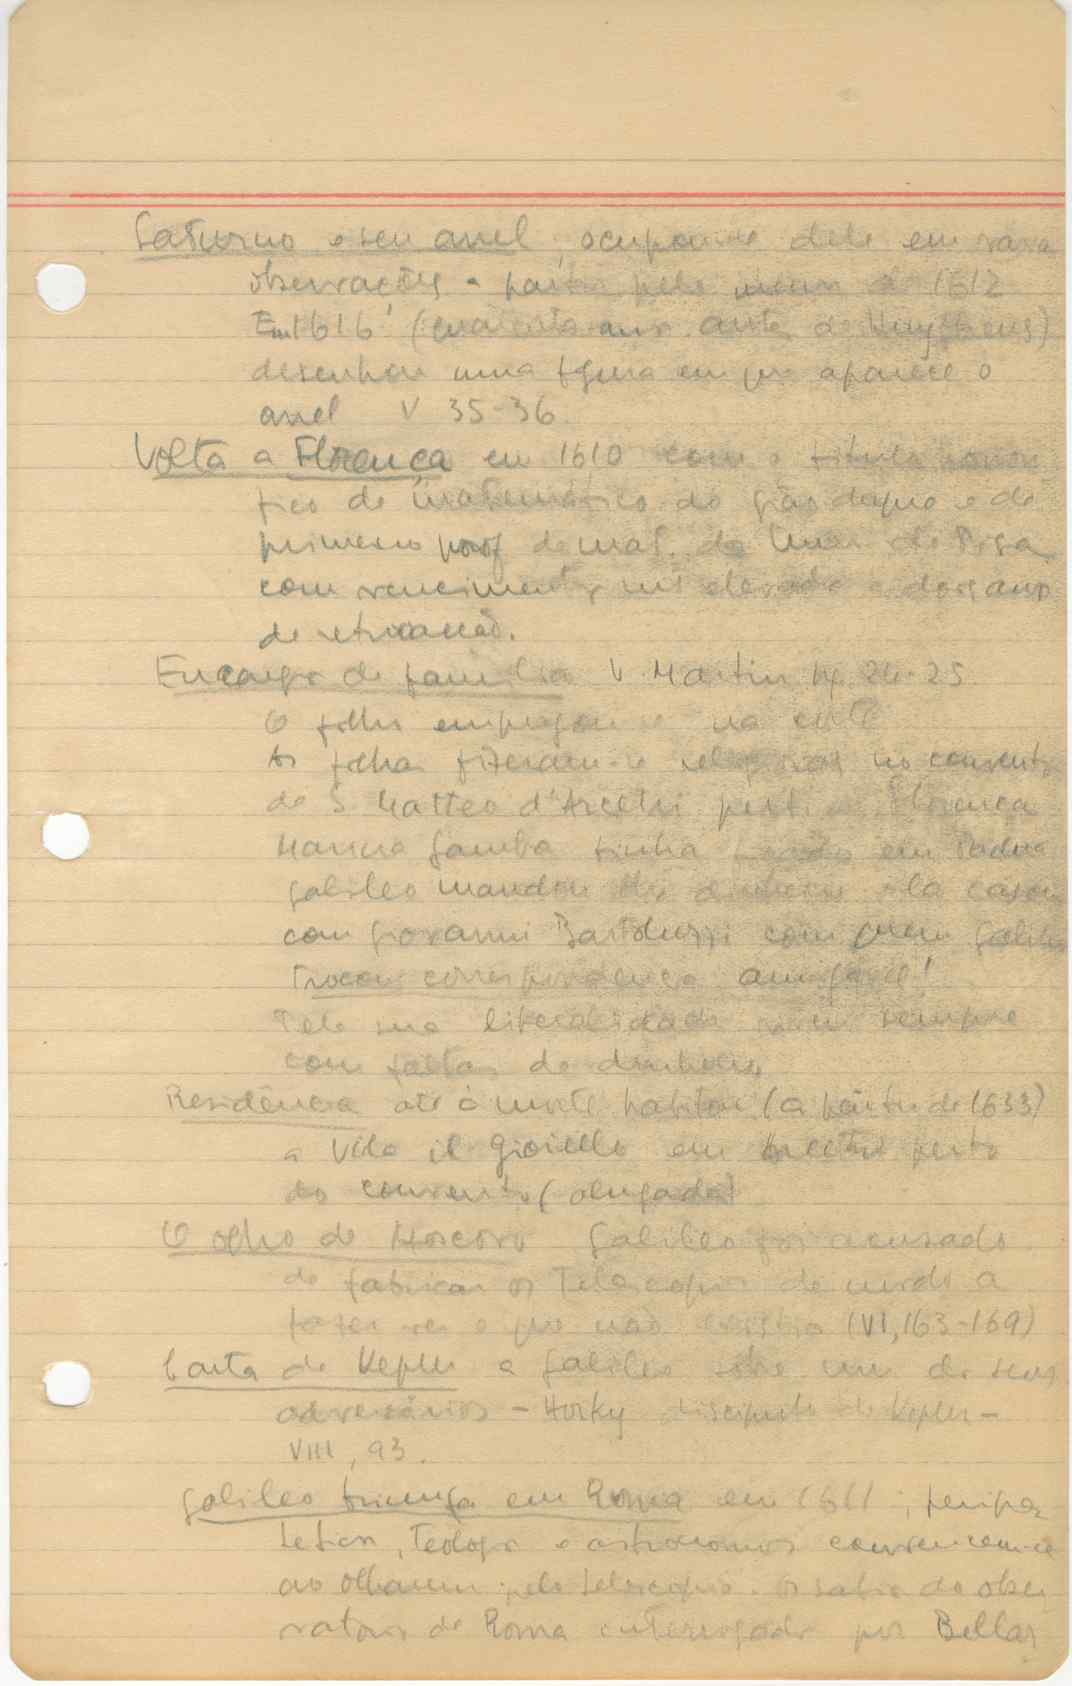 Saturno e seu anel, ocupou-se dele em varia
observações a partir pelo menos de 1612
Em 1616 (quarenta anos antes de Huyghens)
desenhou uma figura em que aparece o
anel V 35-36.
Volta a Florença em 1610 com o titulo
de matemático do grão duque e de
primeiro prof de mat. da Univ de Pisa
com vencimento mt elevado e dois anos
de
Encargos de familia V. Martin pg. 24-25.
O filho empregou-se na corte
As filhas fizeram-se religiosas no convento
de S. Matteo d'Arcetri perto Florença
Marina Gamba tinha ficado em Padua
Galileo mandou lhe dinheiro ela casou
com Giovanni Bartoluzzi com quem Galileo
Trocou correspondencia amigavel!
Pela sua liberalidade sempre
com faltas de dinheiro
Residência até á morte habitou (a partir de 1633)
a Vila il Gioiello em Arcetri perto
do convento (alugada)
O olho de Galileo foi acusado
de fabricar os Telescopios de modo a
fazer ver o que não existia (VI, 163-169)
Carta de Kepler a Galileo sobre um dos seus
adversários – Horky discipulo de Kepler –
VIII, 93.
Galileo triunfa em Roma em 1611; peripa
teticos, Teologos e astronomos convencem-se
ao olharem pelo telescopio. Os sabios do obser
vatorio de Roma interrogados por Bellar